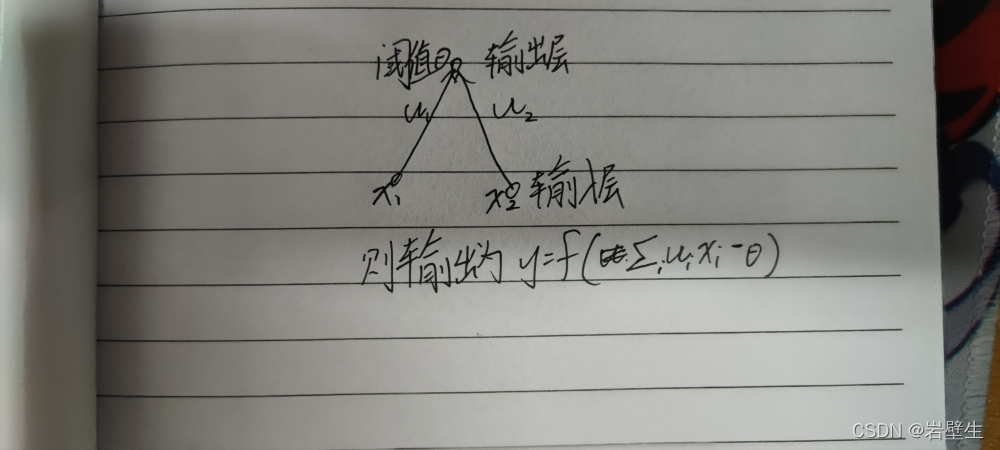 阈值θ 输出层
u₁ u₂
x₁ x₂ 输入层
则输出为 y=f(Σᵢuᵢxᵢ-θ)
CSDN @岩壁生